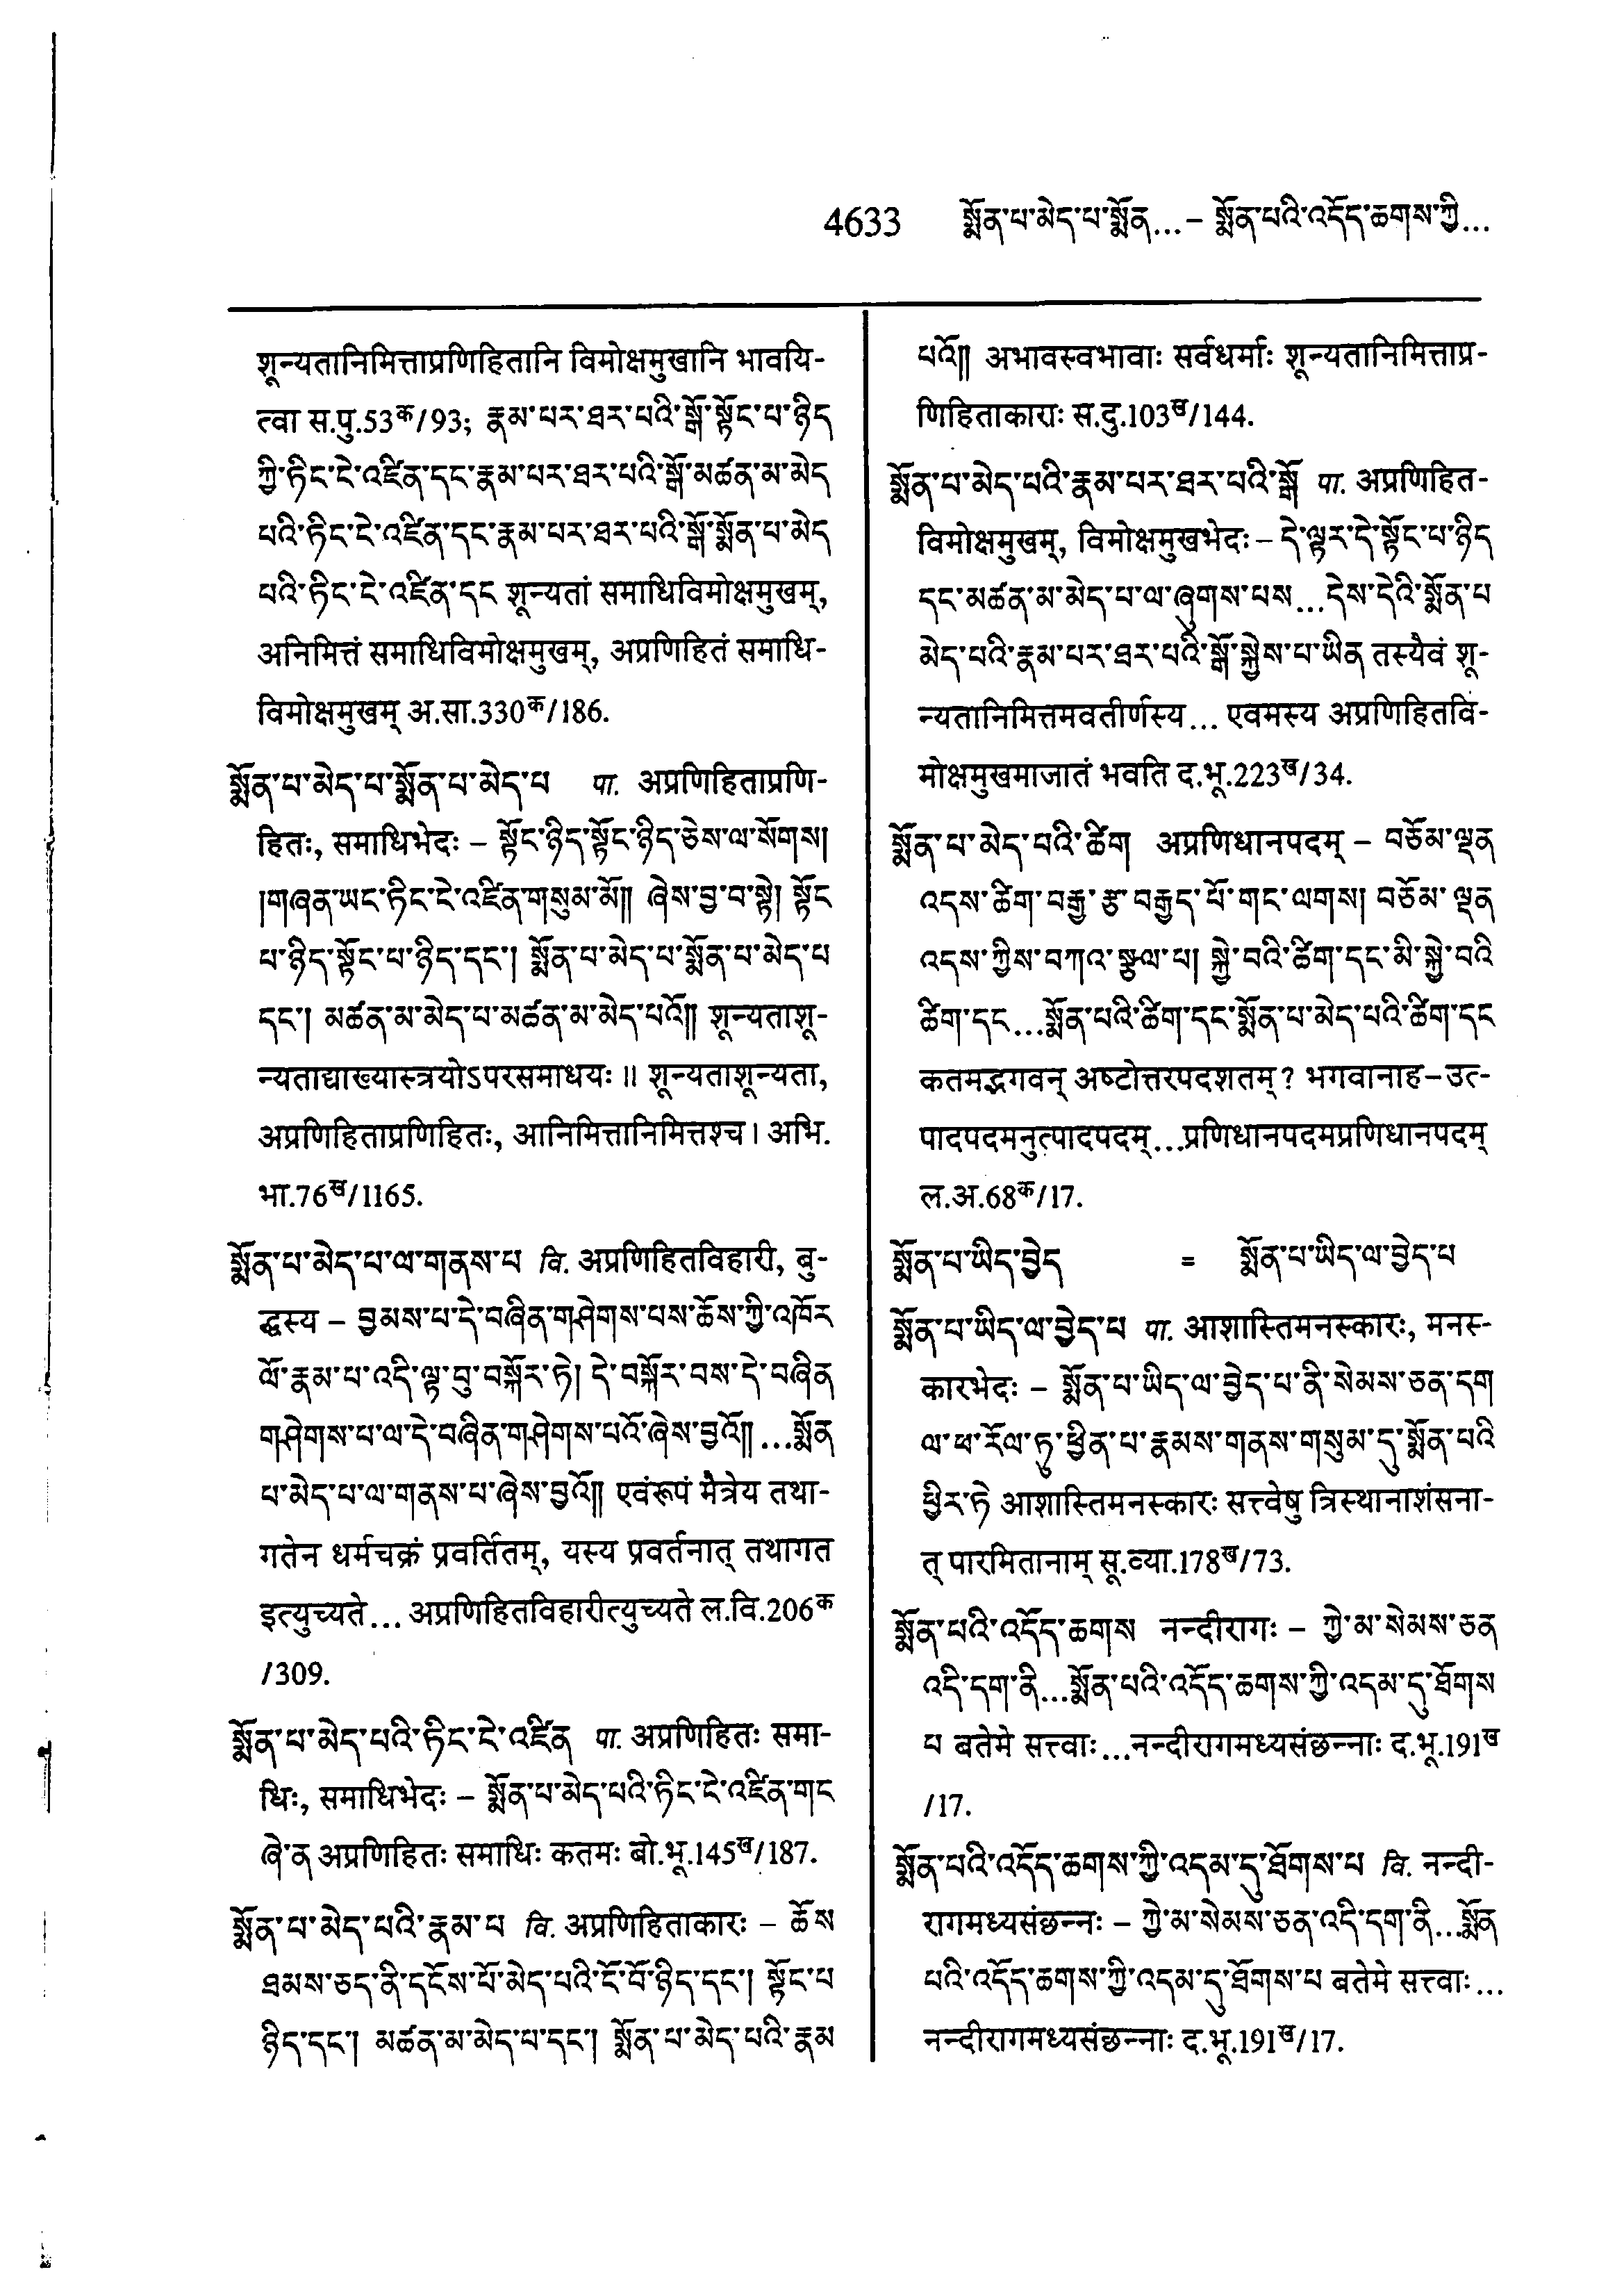 4633 སྨོན་པ་མེད་པ་སྨོན...– སྨོན་པའི་འདོད་ཆགས་ཀྱི...
शून्यतानिमित्ताप्रणिहितानि विमोक्षमुखानि भावयि-
त्वा स.पु.53क/93; རྣམ་པར་ཐར་པའི་སྒོ་སྟོང་པ་ཉིད
ཀྱི་ཏིང་ངེ་འཛིན་དང་རྣམ་པར་ཐར་པའི་སྒོ་མཚན་མ་མེད
པའི་ཏིང་ངེ་འཛིན་དང་རྣམ་པར་ཐར་པའི་སྒོ་སྨོན་པ་མེད
པའི་ཏིང་ངེ་འཛིན་དང शून्यतां समाधिविमोक्षमुखम्,
अनिमित्तं समाधिविमोक्षमुखम्, अप्रणिहितं समाधि-
विमोक्षमुखम् अ.सा.330क/186.
སྨོན་པ་མེད་པ་སྨོན་པ་མེད་པ पा. अप्रणिहिताप्रणि-
हितः, समाधिभेदः – སྟོང་ཉིད་སྟོང་ཉིད་ཅེས་ལ་སོགས།
།གཞན་ཡང་ཏིང་ངེ་འཛིན་གསུམ་མོ།། ཞེས་བྱ་བ་སྟེ། སྟོང
པ་ཉིད་སྟོང་པ་ཉིད་དང་། སྨོན་པ་མེད་པ་སྨོན་པ་མེད་པ
དང་། མཚན་མ་མེད་པ་མཚན་མ་མེད་པའོ།། शून्यताशू-
न्यताद्याख्यास्त्रयोऽपरसमाधयः ॥ शून्यताशून्यता,
अप्रणिहिताप्रणिहितः, आनिमित्तानिमित्तश्च । अभि.
भा.76ख/1165.
སྨོན་པ་མེད་པ་ལ་གནས་པ वि. अप्रणिहितविहारी, बु-
द्धस्य – བྱམས་པ་དེ་བཞིན་གཤེགས་པས་ཆོས་ཀྱི་འཁོར
ལོ་རྣམ་པ་འདི་ལྟ་བུ་བསྐོར་ཏེ། དེ་བསྐོར་བས་དེ་བཞིན
གཤེགས་པ་ལ་དེ་བཞིན་གཤེགས་པའོ་ཞེས་བྱའོ།།...སྨོན
པ་མེད་པ་ལ་གནས་པ་ཞེས་བྱའོ།། एवंरूपं मैत्रेय तथा-
गतेन धर्मचक्रं प्रवर्तितम्, यस्य प्रवर्तनात् तथागत
इत्युच्यते... अप्रणिहितविहारीत्युच्यते ल.वि.206क
/309.
སྨོན་པ་མེད་པའི་ཏིང་ངེ་འཛིན पा. अप्रणिहितः समा-
धिः, समाधिभेदः – སྨོན་པ་མེད་པའི་ཏིང་ངེ་འཛིན་གང
ཞེ་ན अप्रणिहितः समाधिः कतमः बो.भू.145ख/187.
སྨོན་པ་མེད་པའི་རྣམ་པ वि. अप्रणिहिताकारः – ཆོས
ཐམས་ཅད་ནི་དངོས་པོ་མེད་པའི་ངོ་བོ་ཉིད་དང་། སྟོང་པ
ཉིད་དང་། མཚན་མ་མེད་པ་དང་། སྨོན་པ་མེད་པའི་རྣམ
པའོ།། अभावस्वभावाः सर्वधर्माः शून्यतानिमित्ताप्र-
णिहिताकाराः स.दु.103ख/144.
སྨོན་པ་མེད་པའི་རྣམ་པར་ཐར་པའི་སྒོ पा. अप्रणिहित-
विमोक्षमुखम्, विमोक्षमुखभेदः – དེ་ལྟར་དེ་སྟོང་པ་ཉིད
དང་མཚན་མ་མེད་པ་ལ་ཞུགས་པས...དེས་དེའི་སྨོན་པ
མེད་པའི་རྣམ་པར་ཐར་པའི་སྒོ་སྐྱེས་པ་ཡིན तस्यैवं शू-
न्यतानिमित्तमवतीर्णस्य... एवमस्य अप्रणिहितवि-
मोक्षमुखमाजातं भवति द.भू.223ख/34.
སྨོན་པ་མེད་པའི་ཚིག अप्रणिधानपदम् – བཅོམ་ལྡན
འདས་ཚིག་བརྒྱ་རྩ་བརྒྱད་པོ་གང་ལགས། བཅོམ་ལྡན
འདས་ཀྱིས་བཀའ་སྩལ་པ། སྐྱེ་བའི་ཚིག་དང་མི་སྐྱེ་བའི
ཚིག་དང...སྨོན་པའི་ཚིག་དང་སྨོན་པ་མེད་པའི་ཚིག་དང
कतमद्भगवन् अष्टोत्तरपदशतम् ? भगवानाह–उत्-
पादपदमनुत्पादपदम्...प्रणिधानपदमप्रणिधानपदम्
ल.अ.68क/17.
སྨོན་པ་ཡིད་བྱེད = སྨོན་པ་ཡིད་ལ་བྱེད་པ
སྨོན་པ་ཡིད་ལ་བྱེད་པ पा. आशास्तिमनस्कारः, मनस्-
कारभेदः – སྨོན་པ་ཡིད་ལ་བྱེད་པ་ནི་སེམས་ཅན་དག
ལ་ཕ་རོལ་ཏུ་ཕྱིན་པ་རྣམས་གནས་གསུམ་དུ་སྨོན་པའི
ཕྱིར་ཏེ आशास्तिमनस्कारः सत्त्वेषु त्रिस्थानाशंसना-
त् पारमितानाम् सू.व्या.178ख/73.
སྨོན་པའི་འདོད་ཆགས नन्दीरागः – ཀྱེ་མ་སེམས་ཅན
འདི་དག་ནི...སྨོན་པའི་འདོད་ཆགས་ཀྱི་འདམ་དུ་ཐོགས
པ बतेमे सत्त्वाः...नन्दीरागमध्यसंछन्नाः द.भू.191ख
/17.
སྨོན་པའི་འདོད་ཆགས་ཀྱི་འདམ་དུ་ཐོགས་པ वि. नन्दी-
रागमध्यसंछन्नः – ཀྱེ་མ་སེམས་ཅན་འདི་དག་ནི...སྨོན
པའི་འདོད་ཆགས་ཀྱི་འདམ་དུ་ཐོགས་པ बतेमे सत्त्वाः...
नन्दीरागमध्यसंछन्नाः द.भू.191ख/17.